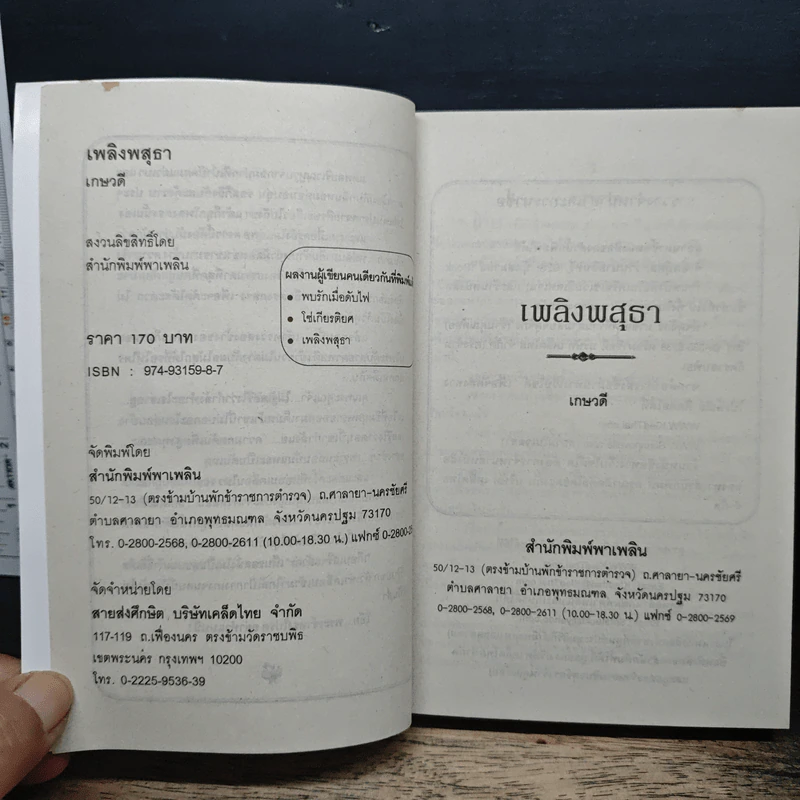 เพลิงพสุธา
เกษวดี
สงวนลิขสิทธิ์โดย
สำนักพิมพ์พาเพลิน
ผลงานผู้เขียนคนเดียวกันที่พิมพ์
• พบรักเมื่อดับไฟ
• โซ่เกียรติยศ
• เพลิงพสุธา
ราคา 170 บาท
ISBN : 974-93159-8-7
จัดพิมพ์โดย
สำนักพิมพ์พาเพลิน
50/12-13 (ตรงข้ามบ้านพักข้าราชการตำรวจ) ถ.ศาลายา-นครชัยศรี
ตำบลศาลายา อำเภอพุทธมณฑล จังหวัดนครปฐม 73170
โทร. 0-2800-2568, 0-2800-2611 (10.00-18.30 น.) แฟกซ์ 0-2800-25
จัดจำหน่ายโดย
สายส่งศึกษิต บริษัทเคล็ดไทย จำกัด
117-119 ถ.เฟื่องนคร ตรงข้ามวัดราชบพิธ
เขตพระนคร กรุงเทพฯ 10200
โทร. 0-2225-9536-39
เพลิงพสุธา
เกษวดี
สำนักพิมพ์พาเพลิน
50/12-13 (ตรงข้ามบ้านพักข้าราชการตำรวจ) ถ.ศาลายา-นครชัยศรี
ตำบลศาลายา อำเภอพุทธมณฑล จังหวัดนครปฐม 73170
0-2800-2568, 0-2800-2611 (10.00-18.30 น.) แฟกซ์ 0-2800-2569